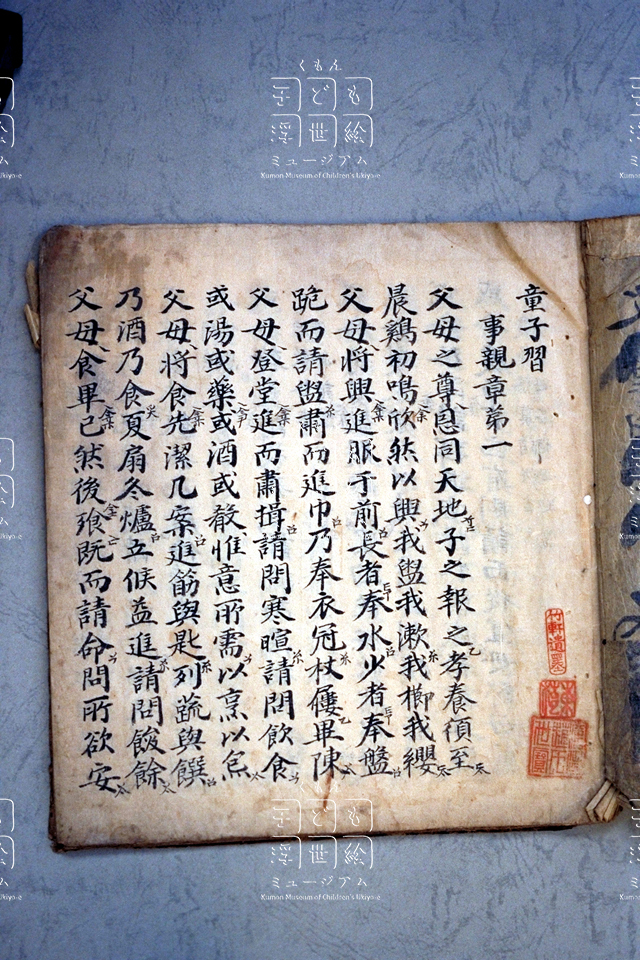 童子習
事親章第一
父母之尊恩同天地子之報之孝養須至
晨鷄初鳴欣然以興我盥我漱我櫛我纓
父母將興進服于前長者奉水少者奉盤
跪而請盥肅而進巾乃奉衣冠杖屨畢陳
父母登堂進而肅揖請問寒暄請問飲食
或湯或藥或酒或殽惟意所需以烹以炰
父母將食先潔几案進筯與匙列蔬與饌
乃酒乃食夏扇冬爐立候益進請問餕餘
父母食畢已然後飡既而請命問所欲安
くもん
子ども
浮世絵
ミュージアム
Kumon Museum of Children's Ukiyo-e
くもん
子ども
浮世絵
ミュージアム
Kumon Museum of Children's Ukiyo-e